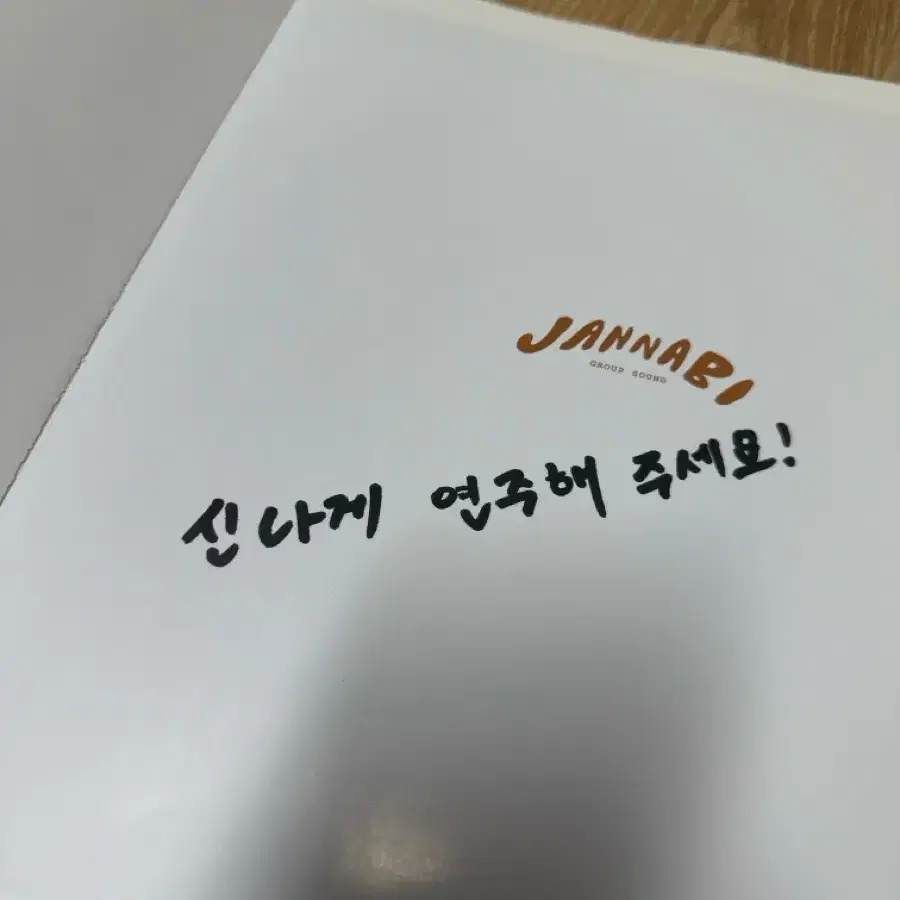 JANNABI
GROUP SOUND
신나게 연주해 주세요!